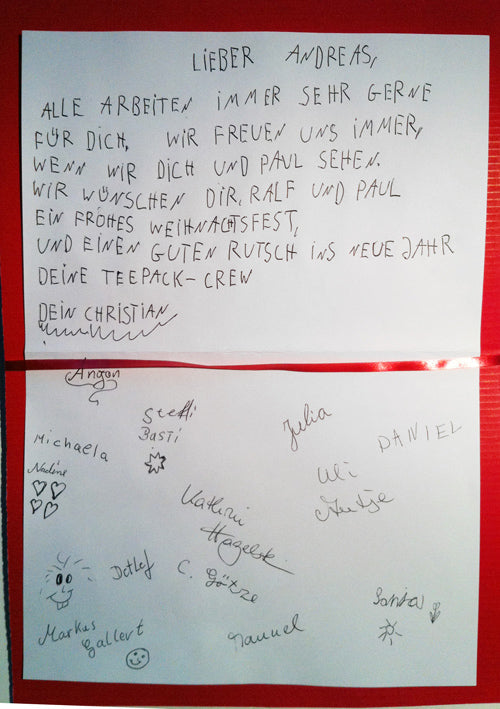 LIEBER ANDREAS,
ALLE ARBEITEN IMMER SEHR GERNE
FÜR DICH, WIR FREUEN UNS IMMER,
WENN WIR DICH UND PAUL SEHEN.
WIR WÜNSCHEN DIR, RALF UND PAUL
EIN FRÖHES WEIHNACHTSFEST,
UND EINEN GUTEN RUTSCH INS NEUE JAHR
DEINE TEEPACK-CREW
DEIN CHRISTIAN
Steffi
Basti
Julia
DANIEL
Michaela
Nadine
Uli
Antje
Kathrin
Detlef
C. Götze
Markus
Gallert
Manuel